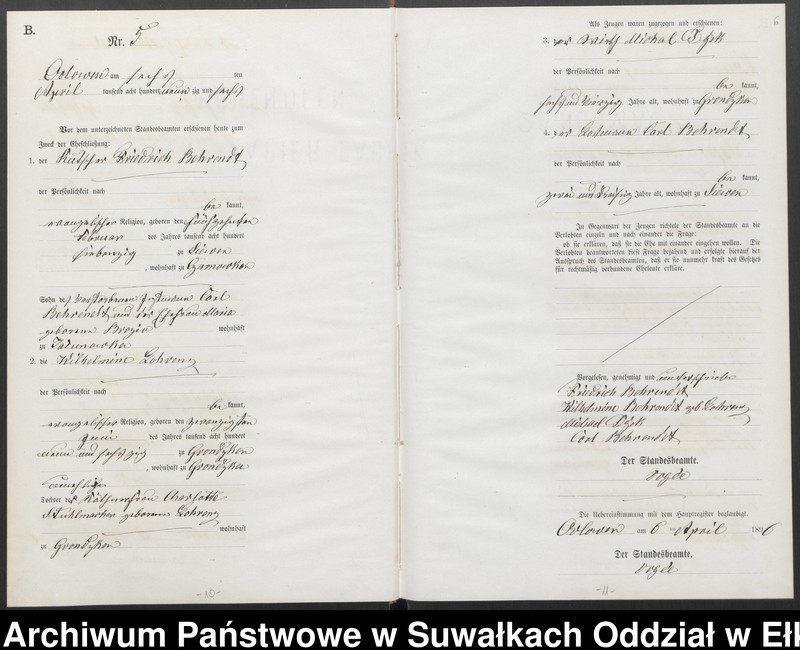 B.
Nr. 5
Orlowen am sechs ten
April tausend acht hundert neun zig und sechs
Vor dem unterzeichneten Standesbeamten erschienen heute zum
Zweck der Eheschließung:
1. der Kutscher Friedrich Behrendt
der Persönlichkeit nach
be kannt,
evangelischer Religion, geboren den fünfzehnten
Februar des Jahres tausend acht hundert
siebenzig zu Siewen
, wohnhaft zu Czarnowken
Sohn des verstorbenen Instmann Carl
Behrendt und der Ehefrau Maria
geborene wohnhaft
zu
2. die Wilhelmine Lohrenz
der Persönlichkeit nach
be kannt,
evangelischer Religion, geboren den zwanzigsten
Juni des Jahres tausend acht hundert
neun und sechszig zu Grondzken
, wohnhaft zu Grondzken
Tochter der Käthnerfrau Charlotte
Stuhlmacher geborene Lohrenz
wohnhaft
zu Grondzken
-10-
6
Als Zeugen waren zugezogen und erschienen:
3. der Wirth Michal Dzik
der Persönlichkeit nach
be kannt,
sechs und vierzig Jahre alt, wohnhaft zu Grondzken
4. der Losmann Carl Behrendt
der Persönlichkeit nach
be kannt,
zwei und dreißig Jahre alt, wohnhaft zu Siewen
In Gegenwart der Zeugen richtete der Standesbeamte an die
Verlobten einzeln und nach einander die Frage:
ob sie erklären, daß sie die Ehe mit einander eingehen wollen. Die
Verlobten beantworteten diese Frage bejahend und erfolgte hierauf der
Ausspruch des Standesbeamten, daß er sie nunmehr kraft des Gesetzes
für rechtmäßig verbundene Eheleute erkläre.
Vorgelesen, genehmigt und unterschrieben
Friedrich Behrendt
Wilhelmine Behrendt geb Lohrenz
Michael Dzik
Carl Behrendt
Der Standesbeamte.
Die Uebereinstimmung mit dem Hauptregister beglaubigt.
Orlowen am 6 ten April 1896
Der Standesbeamte.
-11-
Archiwum Państwowe w Suwałkach Oddział w Ełk